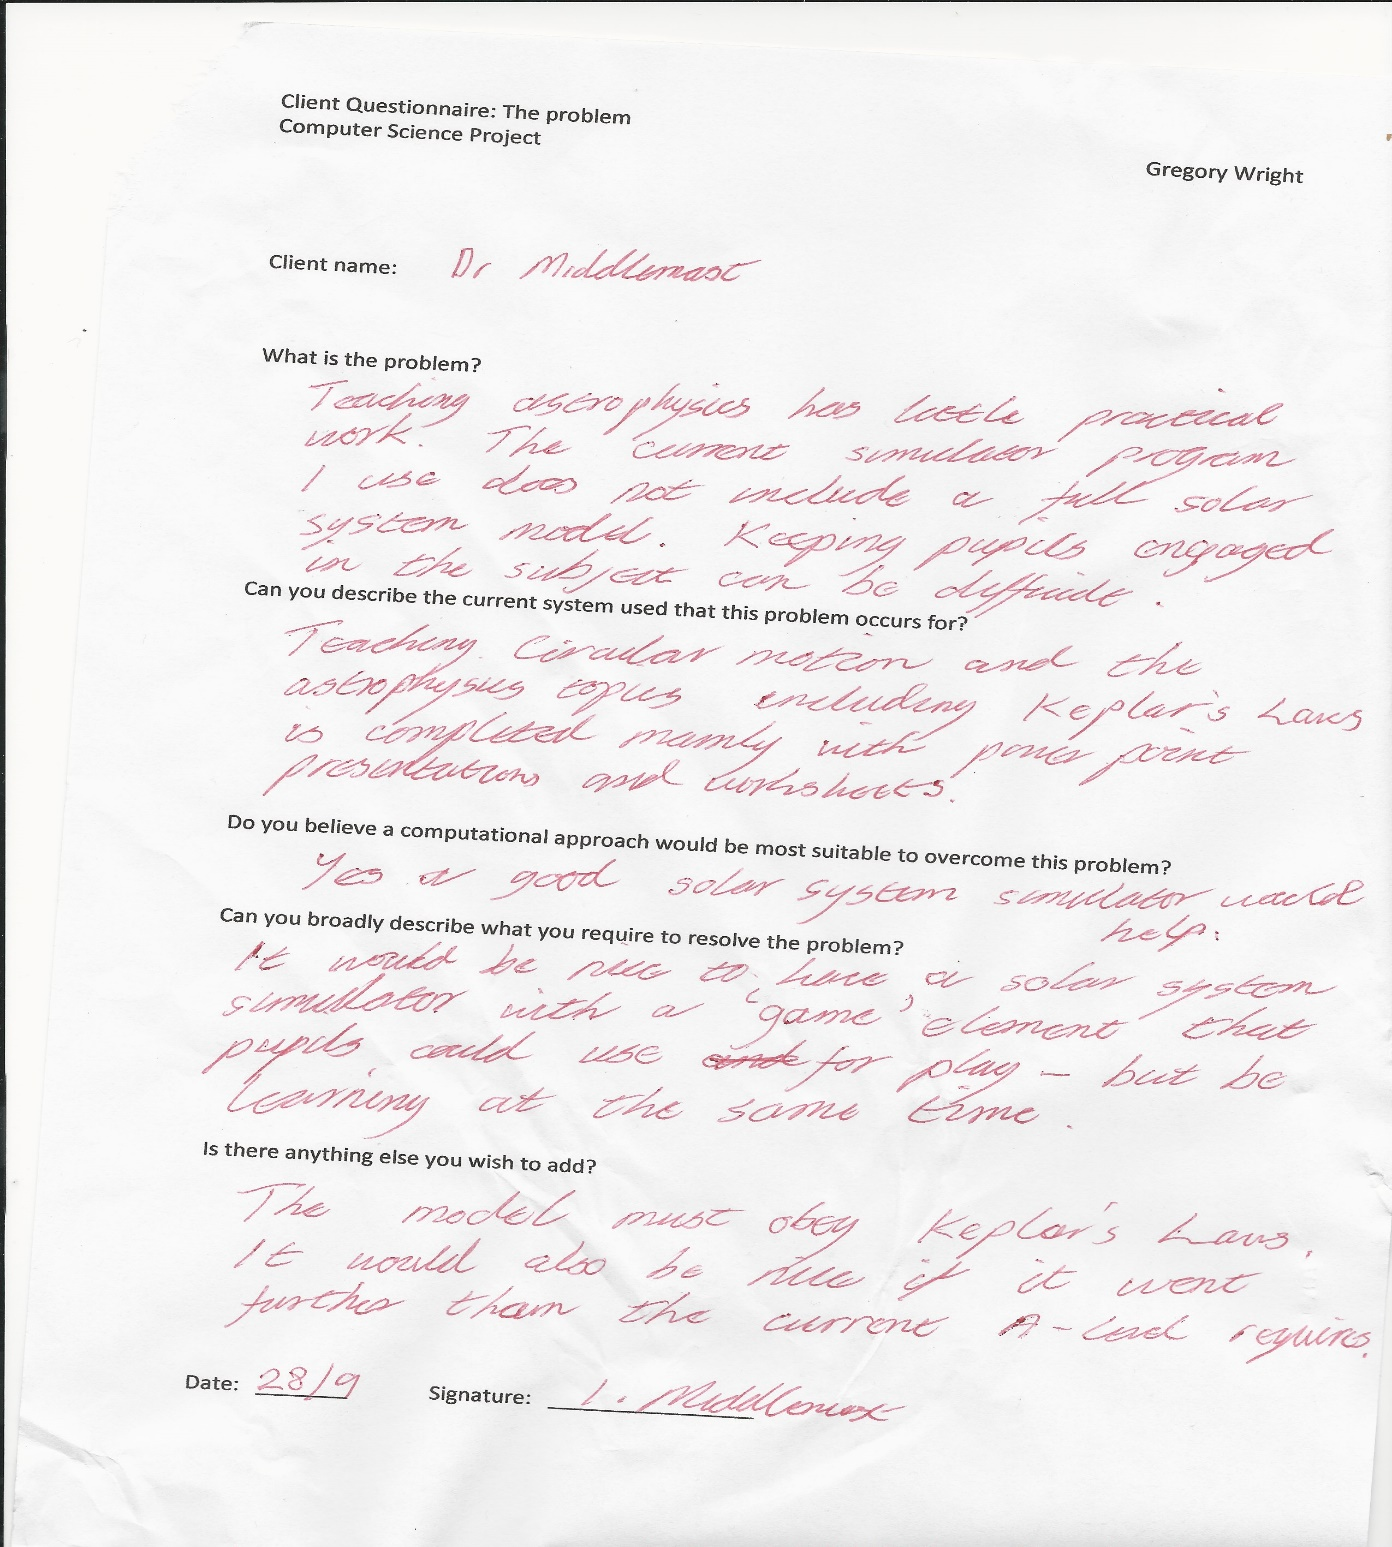 Client Questionnaire: The problem
Computer Science Project
Gregory Wright
Client name: Dr Middlemast
What is the problem?
Teaching astrophysics has little practical
work. The current simulator program
I use does not include a full solar
system model. Keeping pupils engaged
in the subject can be difficult.
Can you describe the current system used that this problem occurs for?
Teaching Circular motion and the
astrophysics topics including Keplar's Laws
is completed mainly with power point
presentations and worksheets.
Do you believe a computational approach would be most suitable to overcome this problem?
Yes a good solar system simulator would
help.
Can you broadly describe what you require to resolve the problem?
It would be nice to have a solar system
simulator with a 'game' element that
pupils could use and for play – but be
learning at the same time.
Is there anything else you wish to add?
The model must obey Keplar's Laws.
It would also be nice if it went
further than the current A-level requires.
Date: 28/9 Signature: I. Middlemast